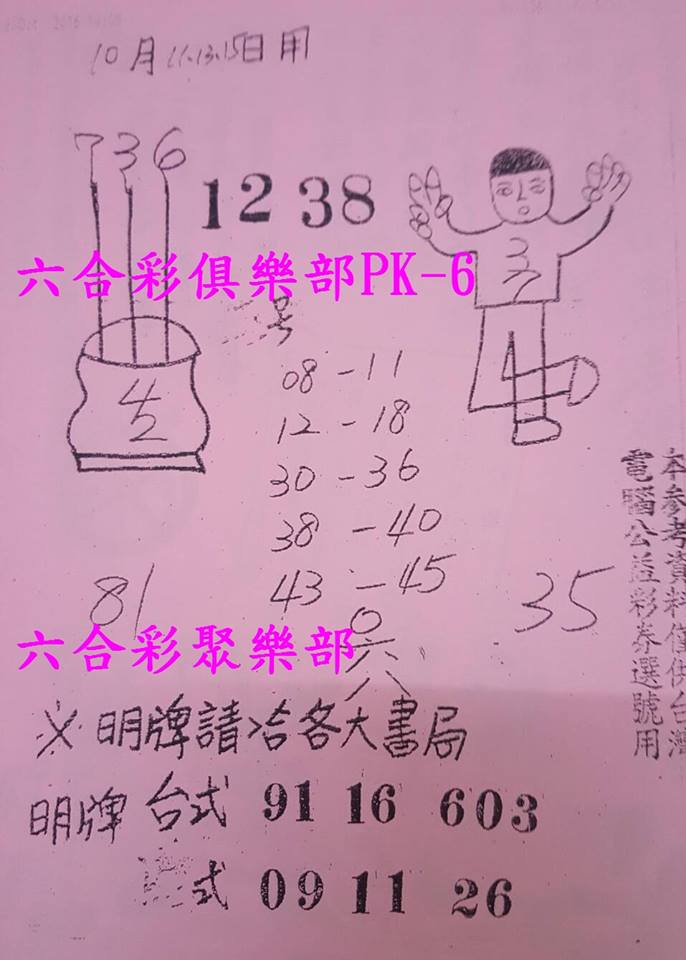 10月11.13.15日用
736
12 38
37
六合彩俱樂部PK-6
号
08-11
42
12-18
30-36
38-40
43-45
81
35
六合彩聚樂部
六
八
※明牌請洽各大書局
明牌 台式 91 16 603
式 09 11 26
本參考資料僅供台灣
電腦公益彩券選號用